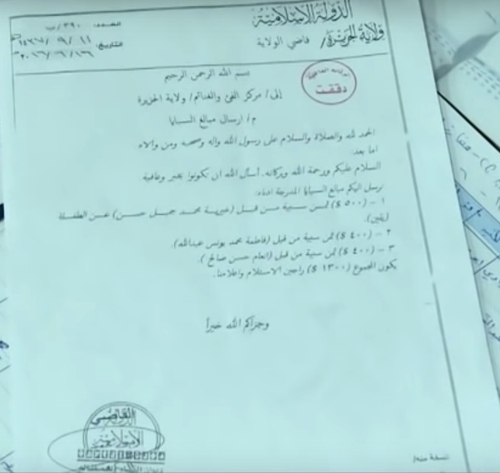 الدولة الإسلامية
ولاية الجزيرة/ قاضي الولاية
العدد: ٣٩٠ /
التاريخ: ١١ / ٩ / ١٤٣٧
١٦ / ٦ / ٢٠١٦
دققت
بسم الله الرحمن الرحيم
إلى/ مركز الفئ والغنائم/ ولاية الجزيرة
م/ ارسال مبالغ السبايا
الحمد لله والصلاة والسلام على رسول الله واله وصحبه ومن والاه
اما بعد
السلام عليكم ورحمة الله وبركاته. أسأل الله ان تكونوا بخير وعافية
نرسل اليكم مبالغ السبايا المدرجة ادناه
١ – (٥٠٠ $) ثمن سبية من قبل (خيرية محمد جميل حسن) عن الطفلة
٢ – (٤٠٠ $) ثمن سبية من قبل (فاطمة محمد يونس عبدالله).
٣ – (٤٠٠ $) ثمن سبية من قبل (انعام حسن صالح).
يكون المجموع (١٣٠٠ $) راجين الاستلام واعلامنا.
وجزاكم الله خيراً
القاضي
الإسلامية
نسخة منه/